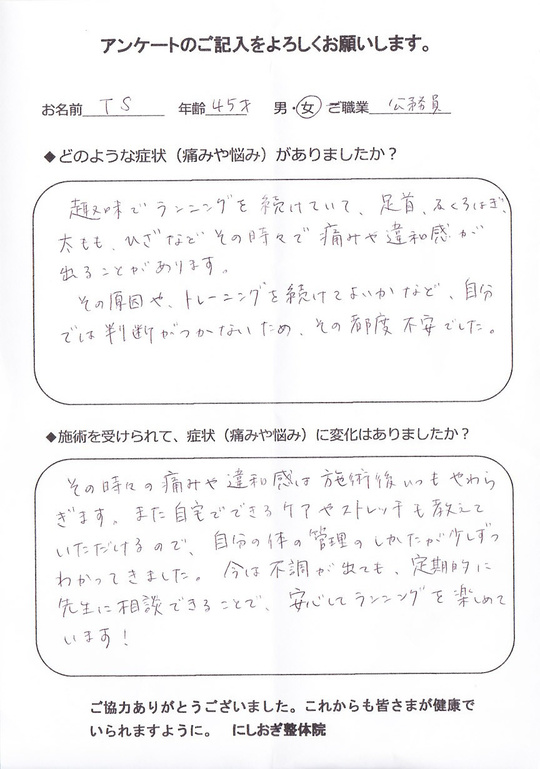 アンケートのご記入をよろしくお願いします。
お名前 TS 年齢 45才 男・女 ご職業 公務員
◆どのような症状（痛みや悩み）がありましたか？
趣味でランニングを続けていて、足首、ふくらはぎ、
太もも、ひざなどその時々で痛みや違和感が
出ることがあります。
その原因や、トレーニングを続けてよいかなど、自分
では判断がつかないため、その都度不安でした。
◆施術を受けられて、症状（痛みや悩み）に変化はありましたか？
その時々の痛みや違和感は施術後いつもやわら
ぎます。また自宅でできるケアやストレッチも教えて
いただけるので、自分の体の管理のしかたが少しずつ
わかってきました。今は不調が出ても、定期的に
先生に相談できることで、安心してランニングを楽しめて
います！
ご協力ありがとうございました。これからも皆さまが健康で
いられますように。 にしおぎ整体院